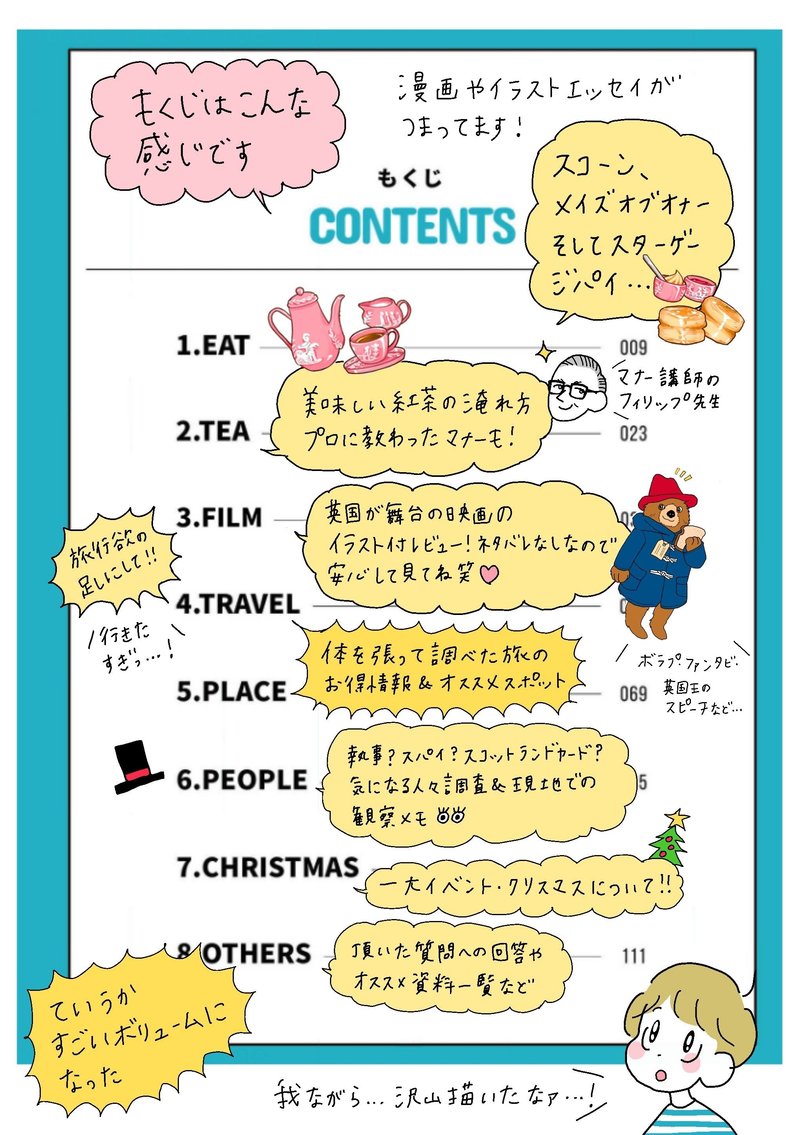 もくじはこんな
感じです
漫画やイラストエッセイが
つまってます!
もくじ
CONTENTS
スコーン、
メイズオブオナー
そしてスターゲー
ジパイ…
1.EAT
009
マナー講師の
フィリップ先生
美味しい紅茶の淹れ方
プロに教わったマナーも!
2.TEA
023
3.FILM
英国が舞台の映画の
イラスト付レビュー!ネタバレなしなので
安心して見てね笑♡
旅行欲の
足しにして!!
行きた
すぎっ…!
4.TRAVEL
ボラプ・ファンタビ・
英国王の
スピーチなど…
体を張って調べた旅の
お得情報&オススメスポット
5.PLACE
069
執事?スパイ?スコットランドヤード?
気になる人々調査&現地での
観察メモ
6.PEOPLE
5
7.CHRISTMAS
一大イベント・クリスマスについて!!
8.OTHERS
111
頂いた質問への回答や
オススメ資料一覧など
ていうか
すごいボリュームに
なった
我ながら…沢山描いたなァ…!